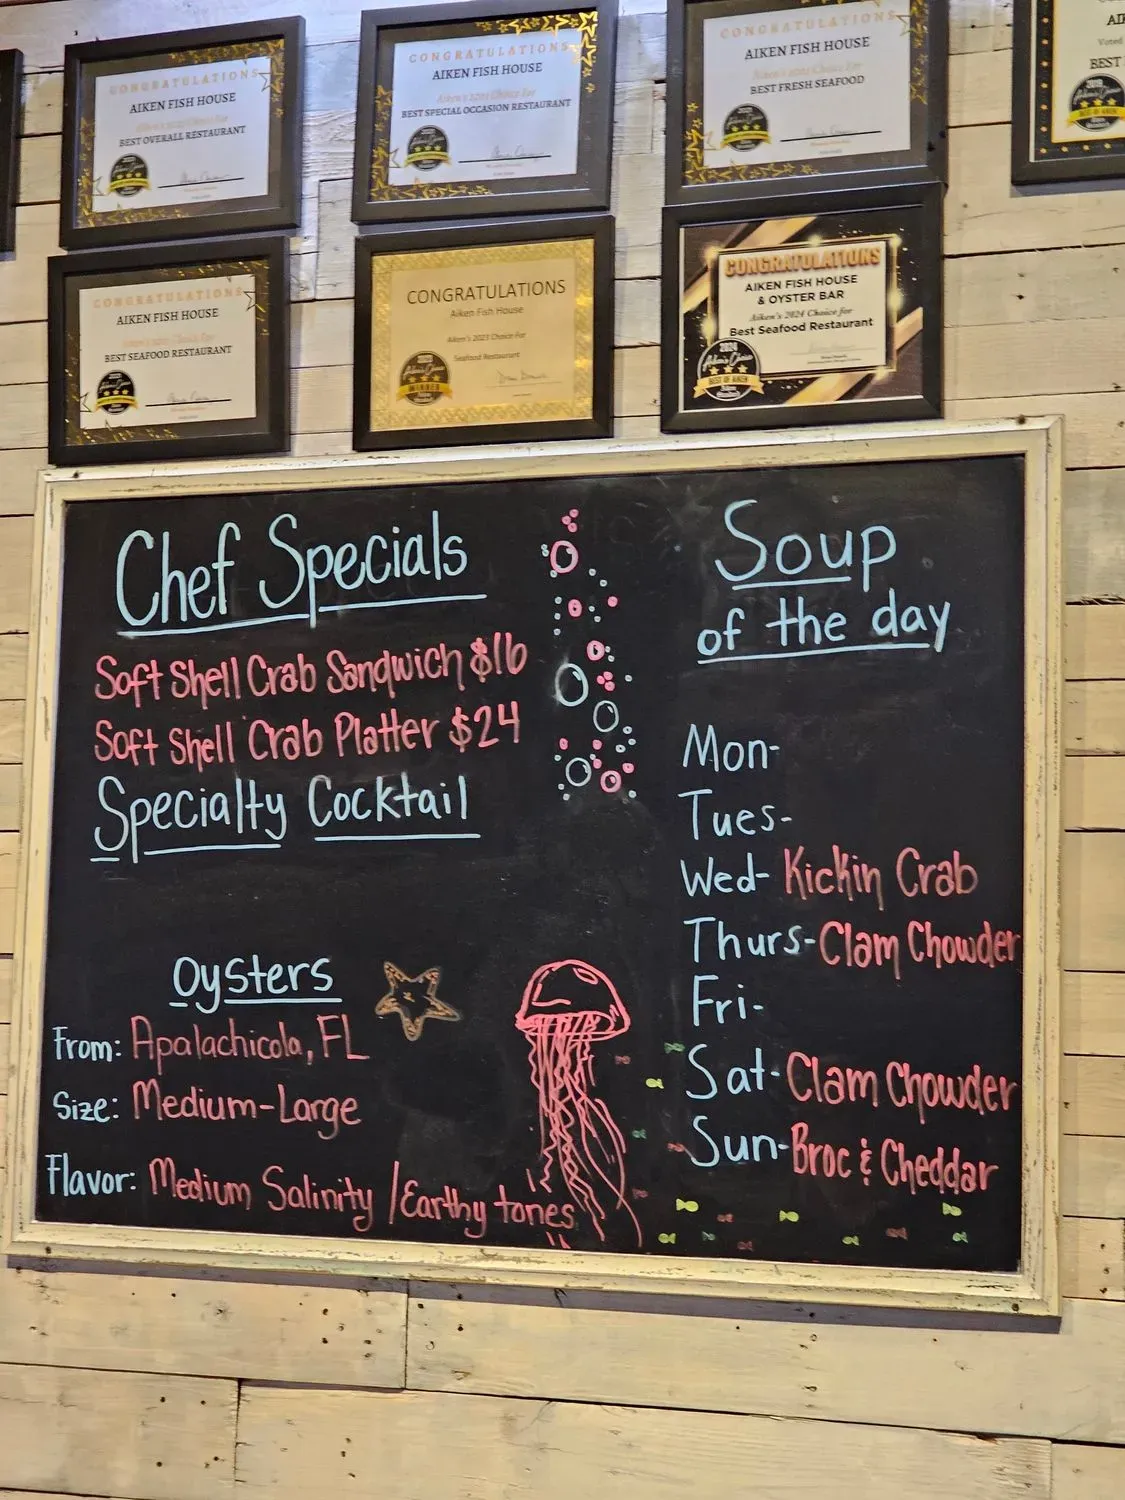 CONGRATULATIONS
AIKEN FISH HOUSE
Aiken's 2022 Choice For
BEST OVERALL RESTAURANT
CONGRATULATIONS
AIKEN FISH HOUSE
Aiken's 2022 Choice For
BEST SPECIAL OCCASION RESTAURANT
CONGRATULATIONS
AIKEN FISH HOUSE
Aiken's 2022 Choice For
BEST FRESH SEAFOOD
Voted
BEST
CONGRATULATIONS
AIKEN FISH HOUSE
BEST SEAFOOD RESTAURANT
CONGRATULATIONS
Aiken Fish House
Aiken's 2023 Choice For
Seafood Restaurant
WINNER
CONGRATULATIONS
AIKEN FISH HOUSE
& OYSTER BAR
Aiken's 2024 Choice for
Best Seafood Restaurant
2024
Aiken's Choice
BEST OF AIKEN
Chef Specials
Soft Shell Crab Sandwich $16
Soft Shell Crab Platter $24
Specialty Cocktail
Oysters
From: Apalachicola, FL
Size: Medium-Large
Flavor: Medium Salinity / Earthy tones
Soup
of the day
Mon-
Tues-
Wed- Kickin Crab
Thurs- Clam Chowder
Fri-
Sat- Clam Chowder
Sun- Broc & Cheddar